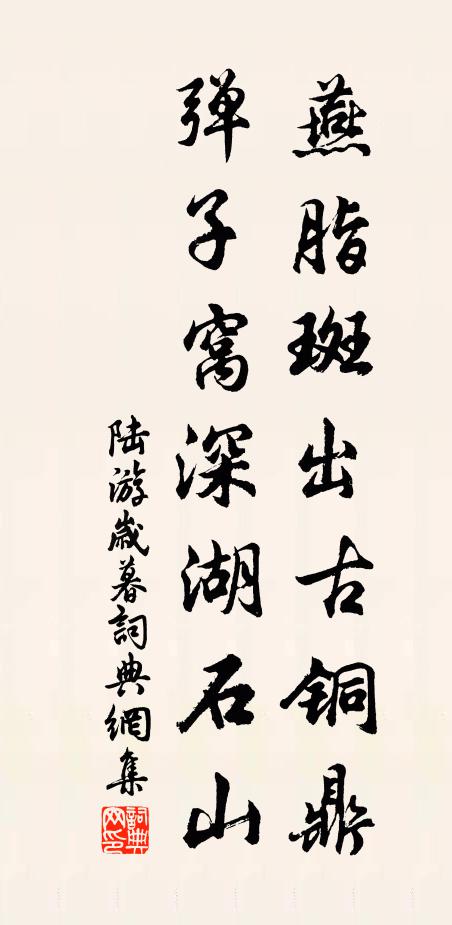 燕脂斑出古铜鼎
弹子窝深湖石山
陆游歲暮詞典網集
詞典
网印